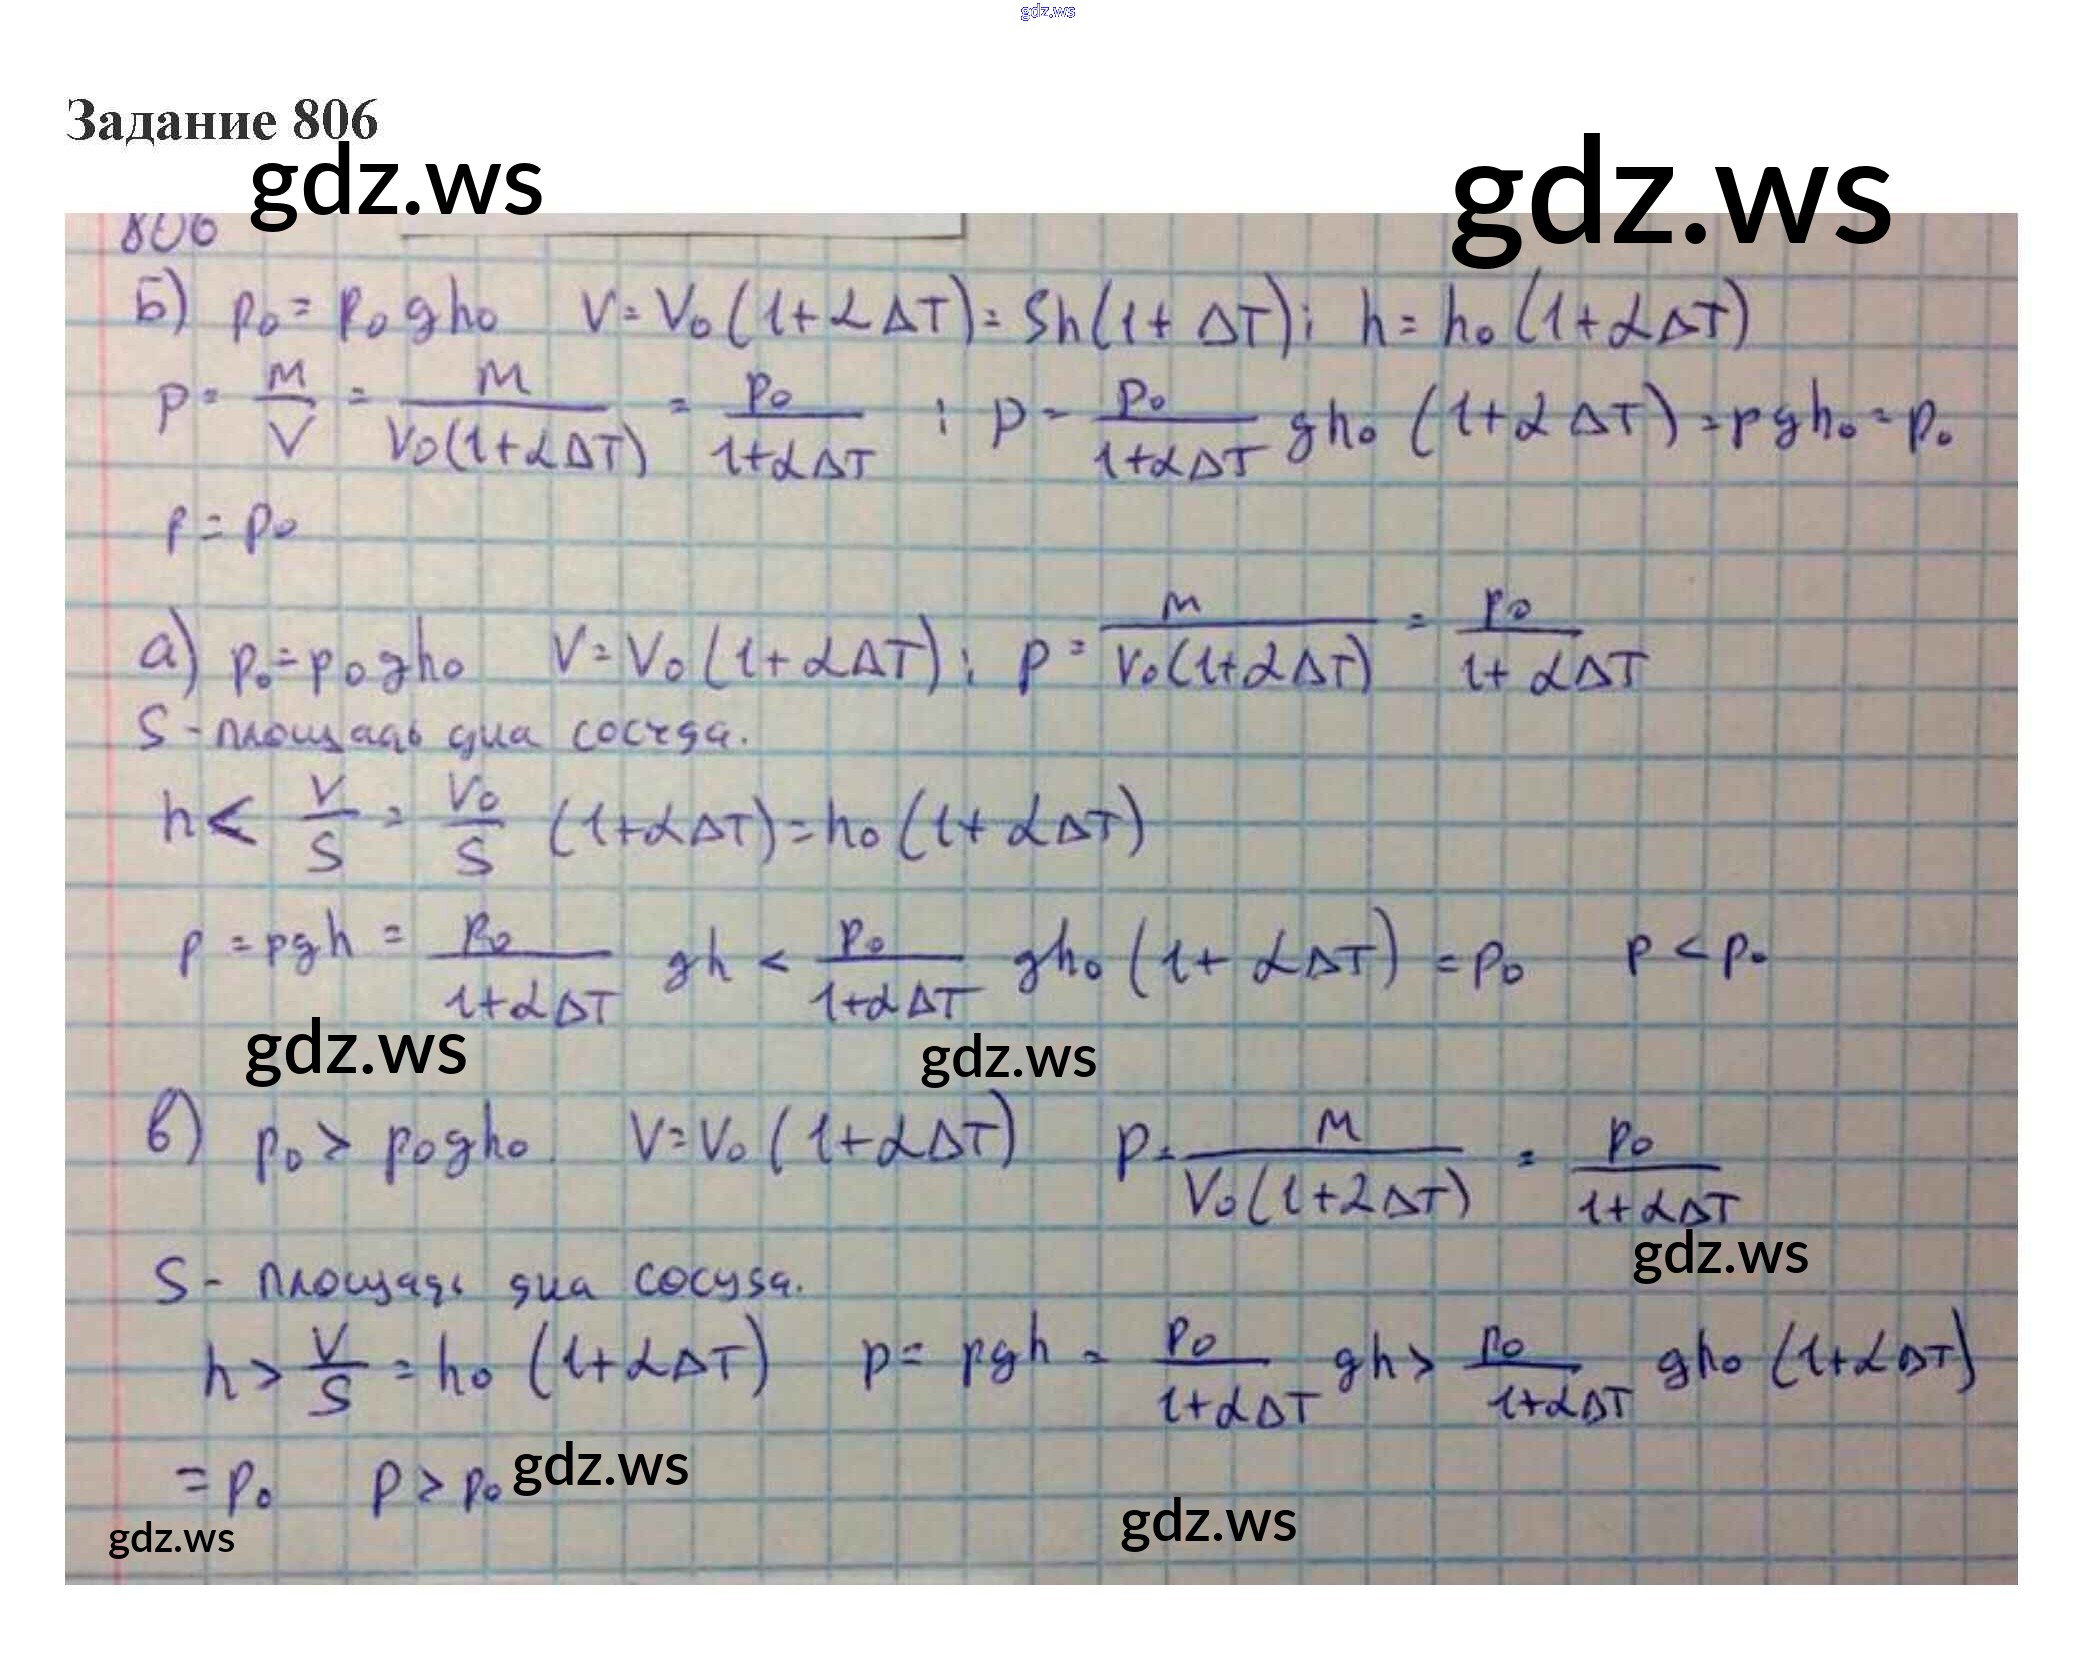 gdz.ws
Задание 806
gdz.ws gdz.ws
806
Б) p₀ = p₀gh₀ V = V₀(1+αΔT) = Sh(1+ ΔT); h = h₀(1+αΔT)
p = m/V = m/(V₀(1+αΔT)) = p₀/(1+αΔT) ; p = p₀/(1+αΔT) gh₀ (1+αΔT) = pgh₀ = p₀
p = p₀
а) p₀ = p₀gh₀ V = V₀(1+αΔT); p = m/(V₀(1+αΔT)) = p₀/(1+αΔT)
S - площадь дна сосуда.
h < V/S = V₀/S (1+αΔT) = h₀(1+αΔT)
p = pgh = p₀/(1+αΔT) gh < p₀/(1+αΔT) gh₀(1+αΔT) = p₀ p < p₀
gdz.ws gdz.ws
в) p₀ > p₀gh₀ V = V₀(1+αΔT) p = m/(V₀(1+2ΔT)) = p₀/(1+αΔT)
gdz.ws
S - площадь дна сосуда.
h > V/S = h₀(1+αΔT) p = pgh = p₀/(1+αΔT) gh > p₀/(1+αΔT) gh₀(1+αΔT)
= p₀ p > p₀ gdz.ws
gdz.ws gdz.ws